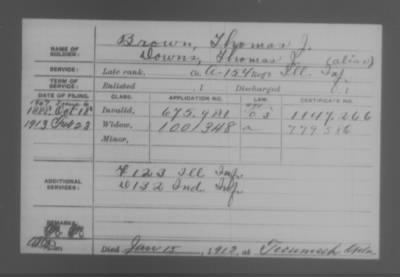 Brown, Thomas J.
NAME OF SOLDIER: Downs, Thomas J. (alias)
SERVICE: Late rank, Co. A-154 Regt. Ill. Inf.
TERM OF SERVICE: Enlisted , 1 Discharged , 1
DATE OF FILING. CLASS. APPLICATION NO. LAW. CERTIFICATE NO.
Oct 18 Invalid, 1117.266
1913 Feb 23 Widow, 1001348 779.586
Minor,
ADDITIONAL SERVICES: F 123 Ill Inf.
D 132 Ind Inf.
REMARKS:
Died Jan 15, 1913, at Tecumseh Okla.